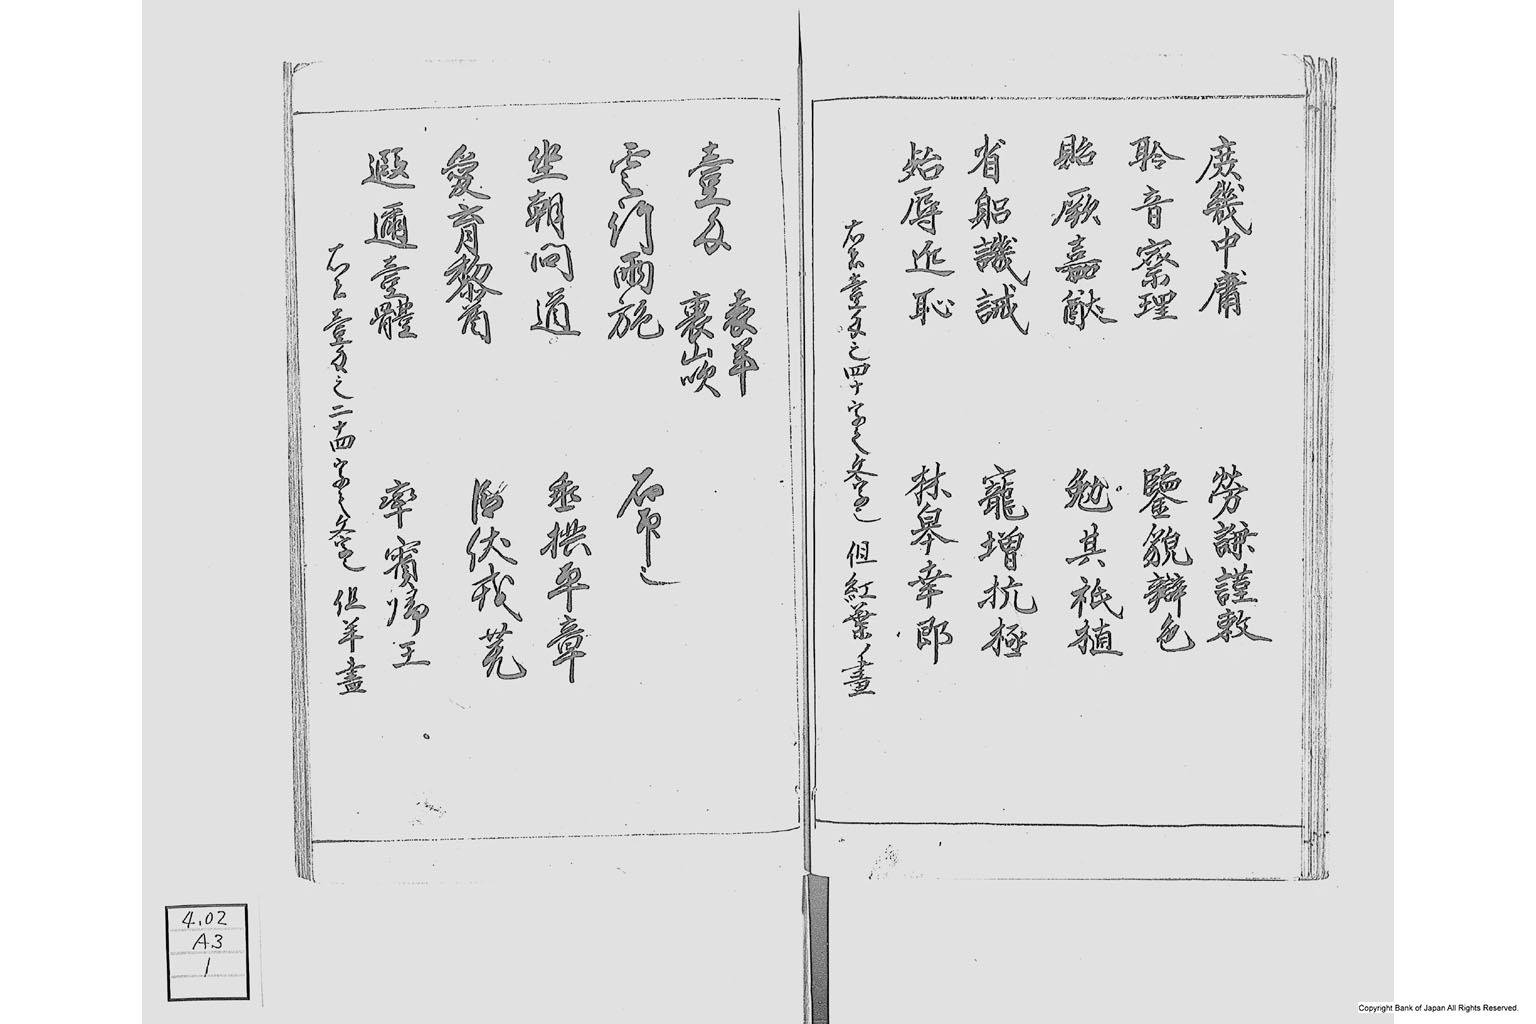 庶幾中庸　勞謙謹敕
聆音察理　鑒貌辨色
貽厥嘉猷　勉其祗植
省躬譏誡　寵增抗極
殆辱近恥　林皋幸即
右者壹匁之四十字之文字也　但紅葉ノ畫
壹匁　表羊
裏山吹
雲行雨施　石印之
坐朝問道　垂拱平章
愛育黎首　臣伏戎羌
遐邇壹體　率賓歸王
右者壹匁之二十四字之文字也　但羊畫
4.02
A3
1
Copyright Bank of Japan All Rights Reserved.